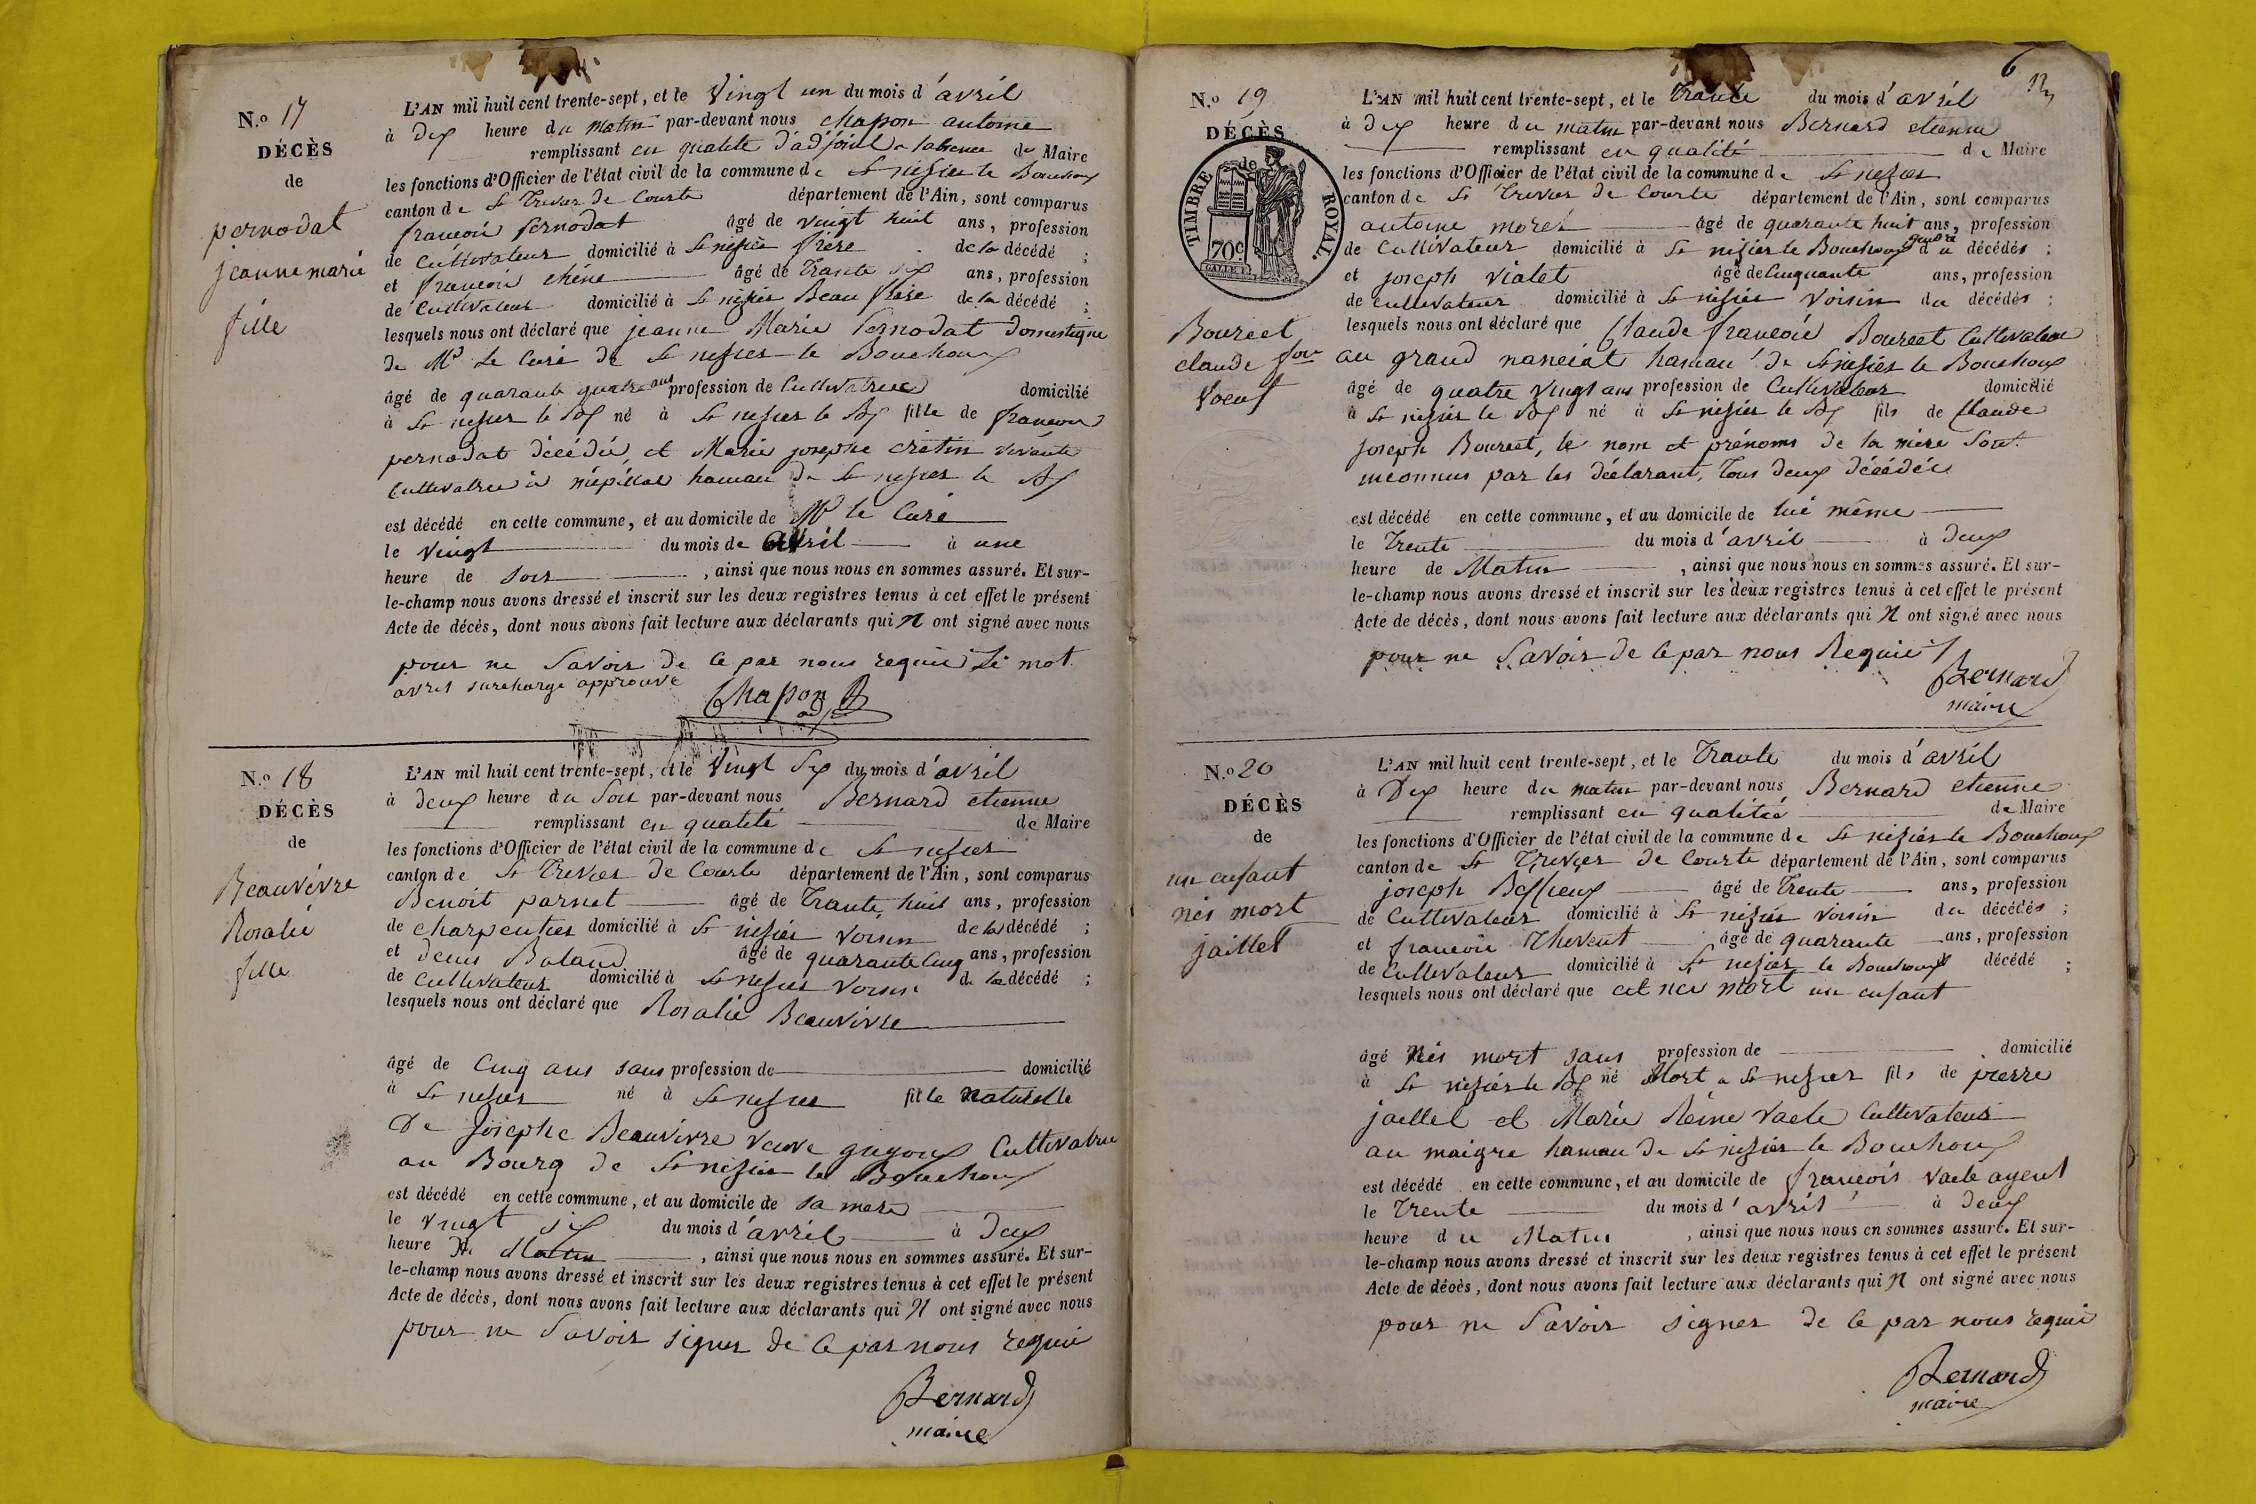 N.º 17
DÉCÈS
de
pernodat
jeanne marie
fille
L'AN mil huit cent trente-sept, et le Vingt un du mois d'avril
à dix heure du matin par-devant nous chapon antoine
remplissant en qualité d'adjoint a labsence de Maire
les fonctions d'Officier de l'état civil de la commune de St nisier le Bouchoux
canton de St Trivier de Courte département de l'Ain, sont comparus
francois pernodat âgé de vingt huit ans, profession
de Cultivateur domicilié à St nisier frère de la décédé ;
et francois chêne âgé de Trante six ans, profession
de Cultivateur domicilié à St nisier Beau frère de la décédé ;
lesquels nous ont déclaré que jeanne Marie Pernodat domestique
de Mr Le Curé de St nisier le Bouchoux
âgé de quarante quatre ans profession de Cultivatrice domicilié
à St nisier le Bx né à St nisier le Bx fille de francois
pernodat décédé, et Marie josephe crétin vivante
Cultivatrice à hameau de St nisier le Bx
est décédé en cette commune, et au domicile de Mr le Curé
le vingt du mois de avril à une
heure de soir , ainsi que nous nous en sommes assuré. Et sur-
le-champ nous avons dressé et inscrit sur les deux registres tenus à cet effet le présent
Acte de décès, dont nous avons fait lecture aux déclarants qui N ont signé avec nous
pour ne Savoir de Ce par nous requis Le mot
avril surcharge approuvé
Chapon adj
N.º 18
DÉCÈS
de
Beauvivre
Rosalie
fille
L'AN mil huit cent trente-sept, et le Vingt Six du mois d'avril
à deux heure du Soir par-devant nous Bernard etienne
remplissant en qualité de Maire
les fonctions d'Officier de l'état civil de la commune de St nisier
canton de St Trivier de Courte département de l'Ain, sont comparus
Benoit parnet âgé de Trante huit ans, profession
de charpentier domicilié à St nisier voisin de la décédé ;
et denis Boland âgé de quarante Cinq ans, profession
de Cultivateur domicilié à St nisier Voisin de la décédé ;
lesquels nous ont déclaré que Rosalie Beauvivre
âgé de Cinq ans sans profession de domicilié
à St nisier né à St nisier fille Naturelle
De Josephe Beauvivre veuve guyoux Cultivatrice
au Bourg de St nisier le Bouchoux
est décédé en cette commune, et au domicile de sa mere
le vingt six du mois d'avril à deux
heure du Matin , ainsi que nous nous en sommes assuré. Et sur-
le-champ nous avons dressé et inscrit sur les deux registres tenus à cet effet le présent
Acte de décès, dont nous avons fait lecture aux déclarants qui N ont signé avec nous
pour ne Savoir signer de Ce par nous requis
Bernard
maire
6
N.º 19
DÉCÈS
de
TIMBRE ROYAL.
70c
Bourcet
claude fois
veuf
L'AN mil huit cent trente-sept, et le Trante du mois d'avril
à dix heure du matin par-devant nous Bernard etienne
remplissant en qualité de Maire
les fonctions d'Officier de l'état civil de la commune de St nisier
canton de St Trivier de Courte département de l'Ain, sont comparus
antoine morel âgé de quarante huit ans, profession
de Cultivateur domicilié à St nisier le Bouchoux du décédés ;
et joseph Vialet âgé de Cinquante ans, profession
de Cultivateur domicilié à St nisier voisin du décédés ;
lesquels nous ont déclaré que Claude francois Bourcet Cultivateur
au grand nanciat hameau de St nisier le Bouchoux
âgé de quatre vingt ans profession de Cultivateur domicilié
à St nisier le Bx né à St nisier le Bx fils de Claude
joseph Bourcet, le nom et prénoms de la mère Sont
inconnus par les déclarant, tous deux décédés
est décédé en cette commune, et au domicile de lui même
le Trente du mois d'avril à deux
heure de Matin , ainsi que nous nous en sommes assuré. Et sur-
le-champ nous avons dressé et inscrit sur les deux registres tenus à cet effet le présent
Acte de décès, dont nous avons fait lecture aux déclarants qui N ont signé avec nous
pour ne Savoir de Ce par nous Requis
Bernard
maire
N.º 20
DÉCÈS
de
un enfant
nés mort
jaillet
L'AN mil huit cent trente-sept, et le Trante du mois d'avril
à Dix heure du matin par-devant nous Bernard etienne
remplissant en qualitié de Maire
les fonctions d'Officier de l'état civil de la commune de St nisier le Bouchoux
canton de St Trivier de Courte département de l'Ain, sont comparus
joseph Beffieux âgé de Trente ans, profession
de Cultivateur domicilié à St nisier voisin du décédés ;
et francois Thevent âgé de quarante ans, profession
de Cultivateur domicilié à St nisier le Bouchoux décédé ;
lesquels nous ont déclaré que cet nes mort un enfant
âgé Nés mort sans profession de domicilié
à St nisier le Bx né Mort a St nisier fils de pierre
jaillet et Marie Reine vacle Cultivateur
au maigre hameau de St nisier le Bouchoux
est décédé en cette commune, et au domicile de francois vacle ayeul
le Trente du mois d'avril à deux
heure du Matin , ainsi que nous nous en sommes assuré. Et sur-
le-champ nous avons dressé et inscrit sur les deux registres tenus à cet effet le présent
Acte de décès, dont nous avons fait lecture aux déclarants qui N ont signé avec nous
pour ne Savoir signer de Ce par nous requis
Bernard
maire